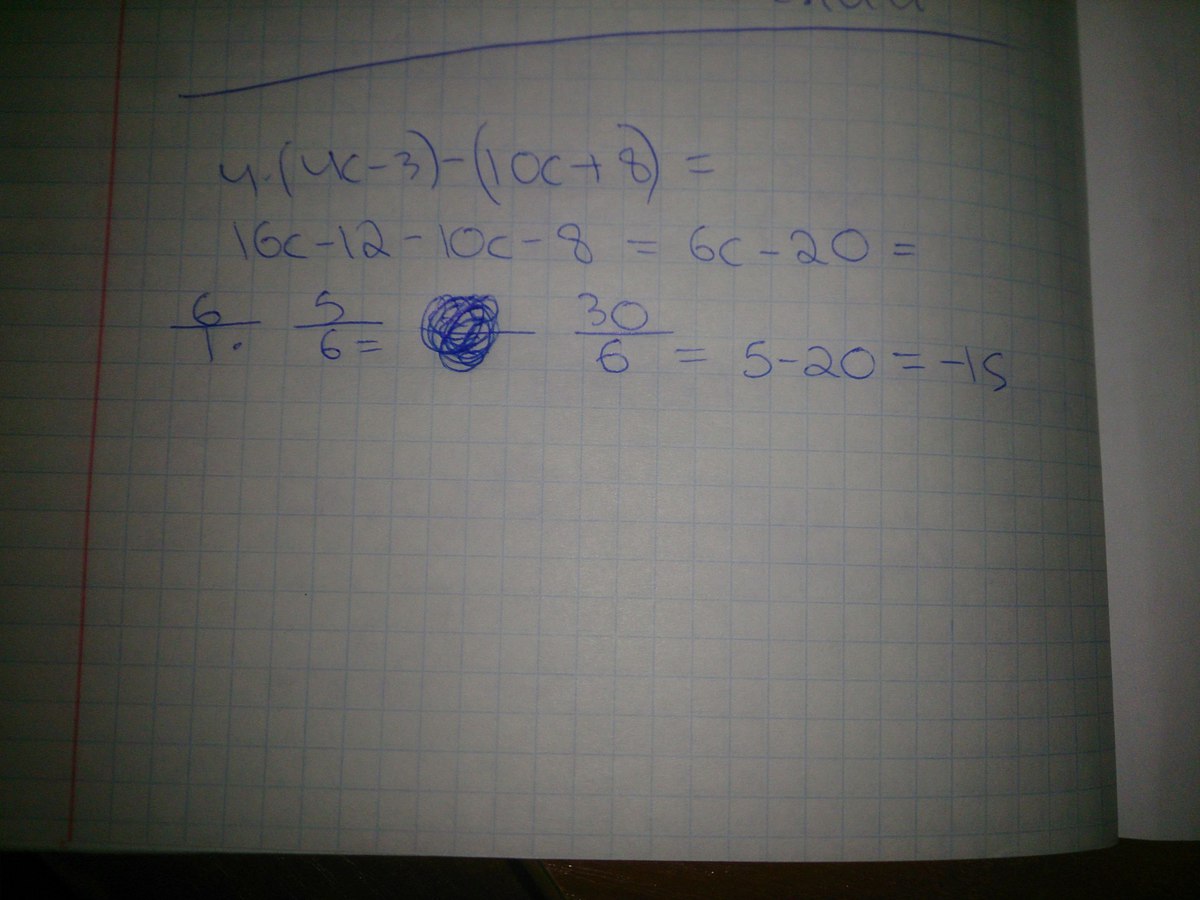 4·(4c-3)-(10c+8) =
16c-12-10c-8 = 6c-20 =
6/1 · 5/6 = 30/6 = 5-20 = -15